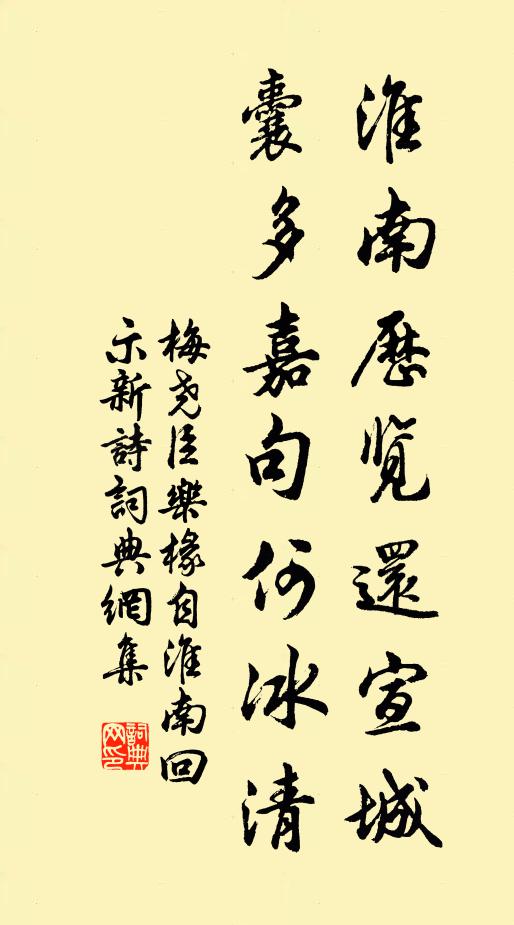 淮南歷览還宣城
囊多嘉句何冰清
梅尧臣樂椽自淮南回
示新詩詞典網集
詞典
网印